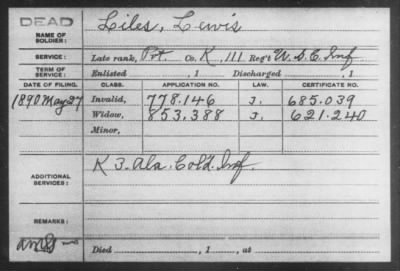 DEAD
NAME OF SOLDIER: Liles, Lewis
SERVICE: Late rank, Pvt. Co. K, 111 Reg't U.S.C. Inf
TERM OF SERVICE: Enlisted , 1 Discharged , 1
DATE OF FILING. CLASS. APPLICATION NO. LAW. CERTIFICATE NO.
1890 May 27 Invalid, 778.146 J. 685.039
Widow, 853,388 J. 621.240
Minor,
ADDITIONAL SERVICES: K 3. Ala. Cold. Inf.
REMARKS:
Died , 1 , at